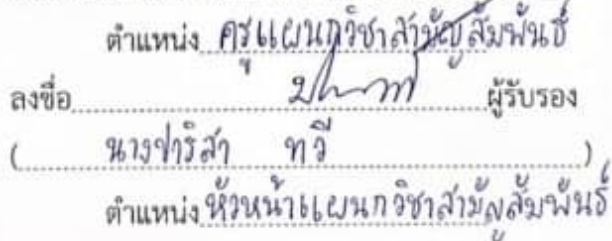 ตำแหน่ง ครูแผนกวิชาสามัญสัมพันธ์
ลงชื่อ ผู้รับรอง
( นางปาริสา ทวี )
ตำแหน่ง หัวหน้าแผนกวิชาสามัญสัมพันธ์